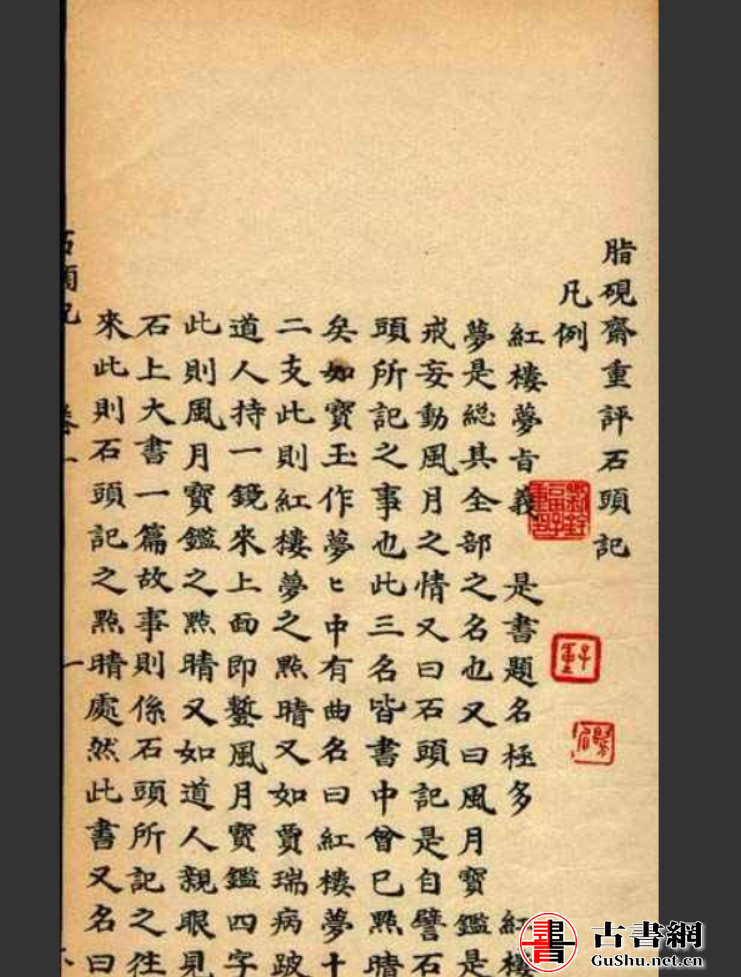 脂硯齋重評石頭記
凡例
紅樓夢旨義 是書題名極多 紅樓
夢是總其全部之名也又曰風月寶鑑是
戒妄動風月之情又曰石頭記是自譬石
頭所記之事也此三名皆書中曾已點睛
矣如寶玉作夢ヒ中有曲名曰紅樓夢十
二支此則紅樓夢之點晴又如賈瑞病跛
道人持一鏡來上面即鏨風月寶鑑四字
此則風月寶鑑之點晴又如道人親眼見
石上大書一篇故事則係石頭所記之往
來此則石頭記之點晴處然此書又名曰
卷一
一
古書網
GuShu.net.cn